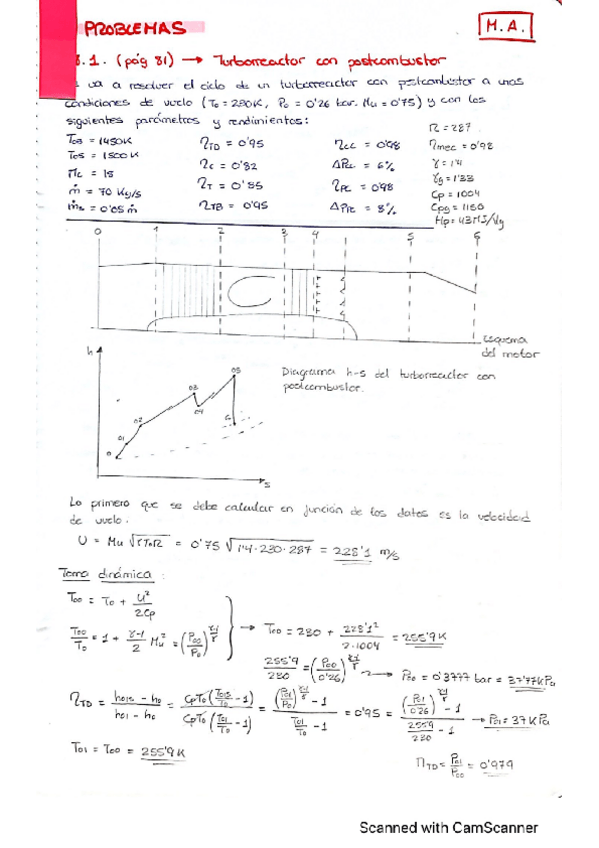 PROBLEMAS
M.A.
8.1. (pág 81) → Turborreactor con postcombustor
va a resolver el ciclo de un turborreactor con postcombustor a unas
condiciones de vuelo (T0 = 230K, P0 = 0'26 bar. Mu = 0'75) y con los
siguientes parámetros y rendimientos:
R = 287
T03 = 1450K ηTD = 0'95 ηcc = 0'98 ηmec = 0'98
T05 = 1800K ηc = 0'82 ΔPcc = 6% γ = 1'4
πc = 18 ηT = 0'85 ηPC = 0'98 γg = 1'33
ṁ = 70 Kg/s ηTB = 0'95 ΔPPC = 8% Cp = 1004
ṁR = 0'05 ṁ Cpg = 1150
Hp = 43MJ/Kg
0 1 2 3 4 5 6
esquema
del motor
h
05
03
04
02
6
01
0
s
Diagrama h-s del turborreactor con
postcombustor.
Lo primero que se debe calcular en función de los datos es la velocidad
de vuelo.
U = Mu √γT0R = 0'75 √1'4·230·287 = 228'1 m/s
Toma dinámica:
T00 = T0 + U²/2Cp
T00/T0 = 1 + γ-1/2 Mu² = (P00/P0)^γ-1/γ → T00 = 230 + 228'1²/2·1004 = 255'9 K
255'9/230 = (P00/0'26)^γ-1/γ → P00 = 0'3777 bar = 37'77KPa
ηTD = h01s - h0/h01 - h0 = CpT0(T01s/T0 - 1)/CpT0(T01/T0 - 1) = (P01/P0)^γ-1/γ - 1/T01/T0 - 1 = 0'95 = (P01/0'26)^γ-1/γ - 1/255'9/230 - 1 → P01 = 37 KPa
T01 = T00 = 255'9 K
πTD = P01/P00 = 0'979
Scanned with CamScanner